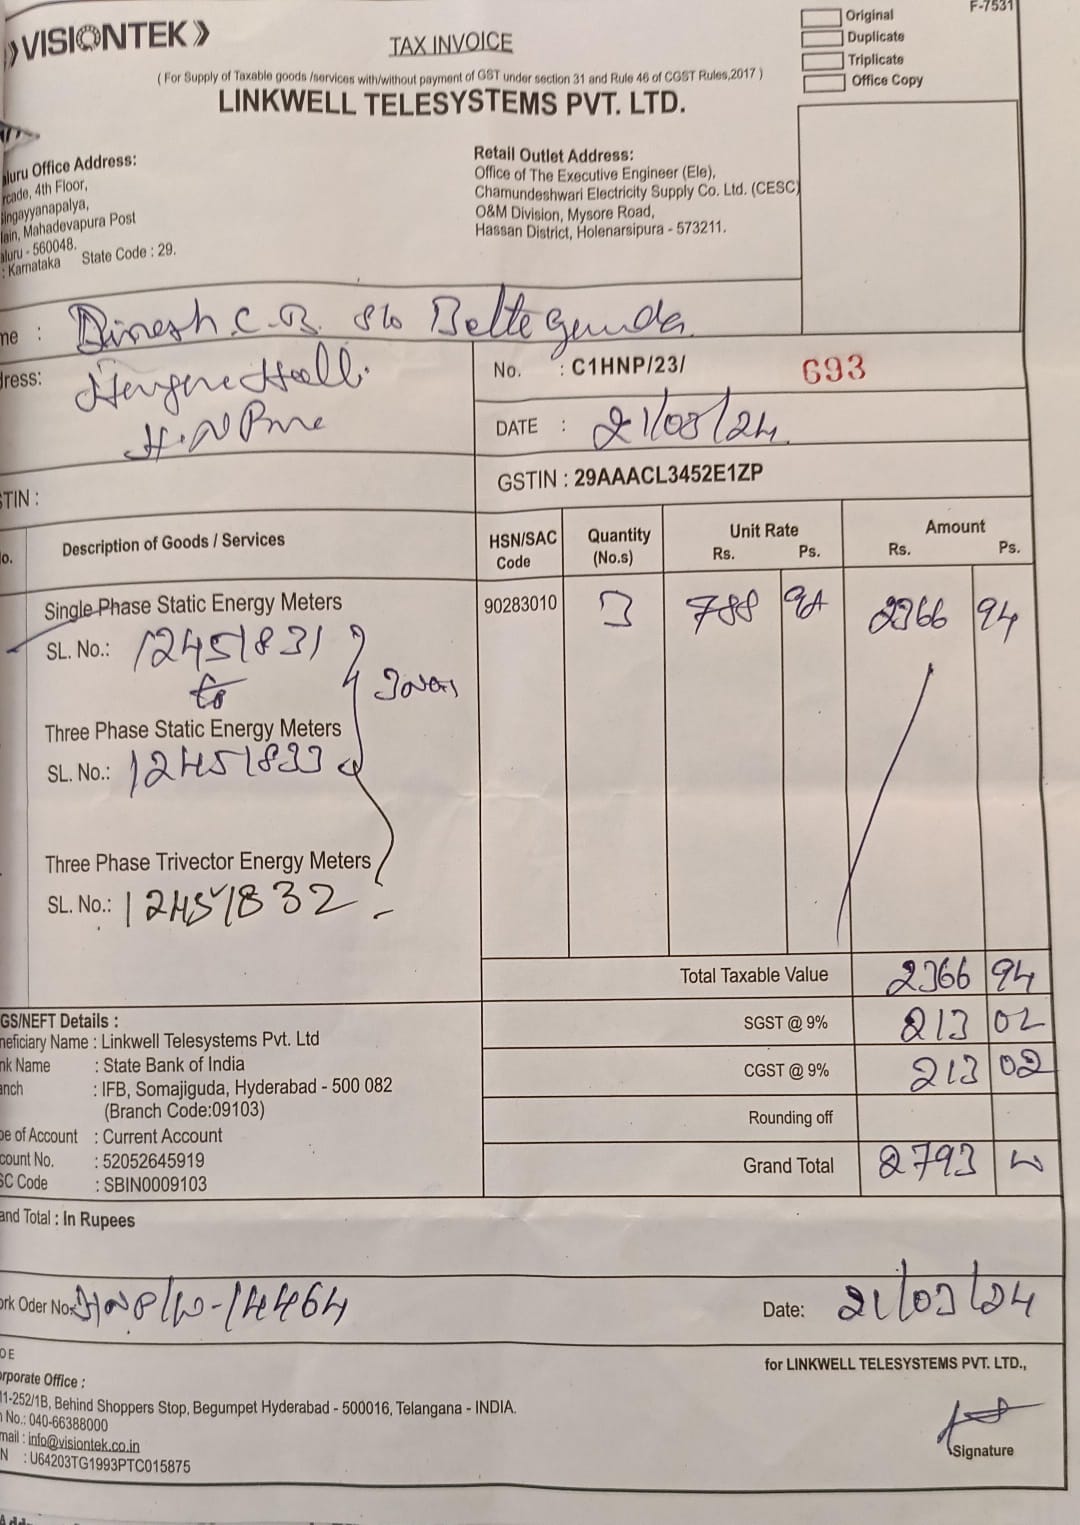 VISIONTEK
TAX INVOICE
F-7531
Original
Duplicate
Triplicate
Office Copy
( For Supply of Taxable goods /services with/without payment of GST under section 31 and Rule 46 of CGST Rules,2017 )
LINKWELL TELESYSTEMS PVT. LTD.
aluru Office Address:
rcade, 4th Floor,
ingayyanapalya,
lain, Mahadevapura Post
aluru - 560048.
: Karnataka State Code : 29.
Retail Outlet Address:
Office of The Executive Engineer (Ele),
Chamundeshwari Electricity Supply Co. Ltd. (CESC)
O&M Division, Mysore Road,
Hassan District, Holenarsipura - 573211.
me : Dinesh C.B. S/o Bettegowda
dress:
No. : C1HNP/23/ 693
DATE : 21/03/24
STIN :
GSTIN : 29AAACL3452E1ZP
o. Description of Goods / Services HSN/SAC Code Quantity (No.s) Unit Rate Rs. Ps. Amount Rs. Ps.
Single Phase Static Energy Meters 90283010 3 788 98 2366 94
SL. No.: 12451831
to
Three Phase Static Energy Meters
SL. No.: 12451833
Three Phase Trivector Energy Meters
SL. No.: 12451832
Total Taxable Value 2366 94
SGST @ 9% 213 02
CGST @ 9% 213 02
Rounding off
Grand Total 2793
GS/NEFT Details :
neficiary Name : Linkwell Telesystems Pvt. Ltd
nk Name : State Bank of India
anch : IFB, Somajiguda, Hyderabad - 500 082
(Branch Code:09103)
pe of Account : Current Account
count No. : 52052645919
SC Code : SBIN0009103
and Total : In Rupees
ork Oder No: HNP/W-14464
Date: 21/03/24
OE
for LINKWELL TELESYSTEMS PVT. LTD.,
orporate Office :
11-252/1B, Behind Shoppers Stop, Begumpet Hyderabad - 500016, Telangana - INDIA.
No.: 040-66388000
mail : info@visiontek.co.in
N : U64203TG1993PTC015875
Signature